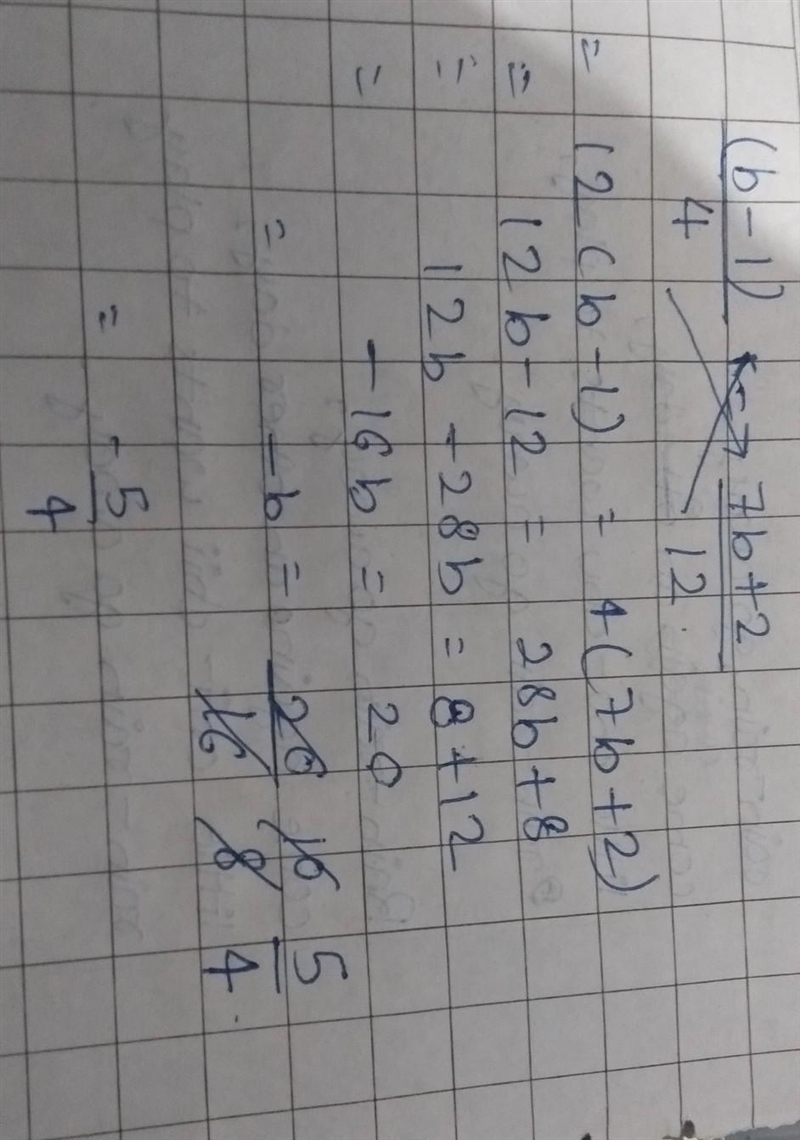 (b-1)/4 ↔ 7b+2/12.
= 12(b-1) = 4(7b+2)
= 12b-12 = 28b+8
= 12b-28b = 8+12
= -16b = 20
= -b = 20/16 10/8 5/4.
= -5/4